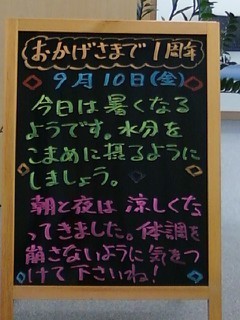 おかげさまで1周年
9月10日(金)
今日は暑くなる
ようです。水分を
こまめに摂るように
しましょう。
朝と夜は涼しくなっ
てきました。体調を
崩さないように気をつ
けて下さいね!